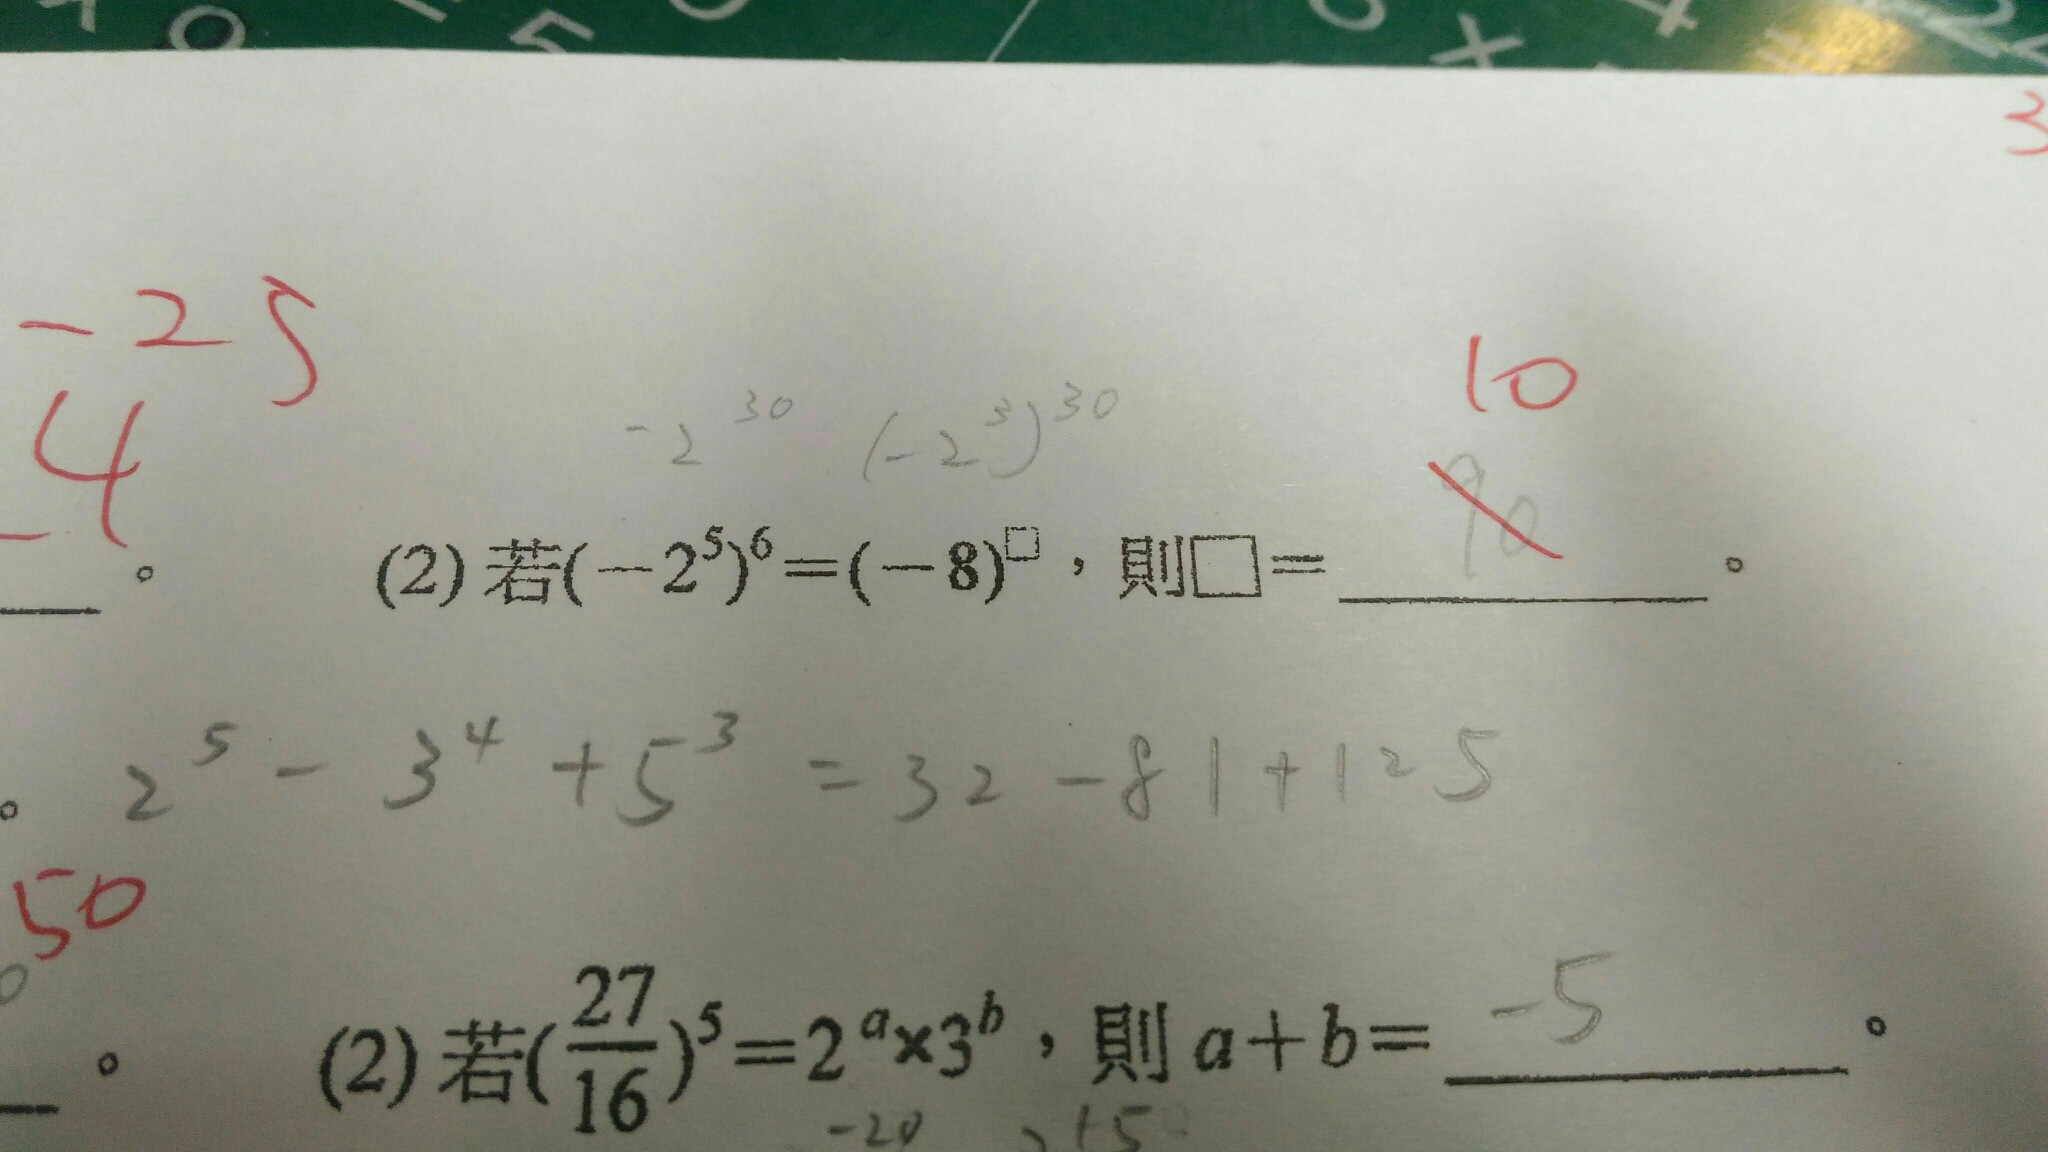 3
-25
10
-2³⁰ (-2³)³⁰
4
90
(2) 若(-2⁵)⁶=(-8)^□，則□=________。
。
2⁵ - 3⁴ + 5³ = 32 - 81 + 125
。
50
(2) 若(27/16)⁵=2ᵃ×3ᵇ，則 a+b= -5 。
。
-20 +5